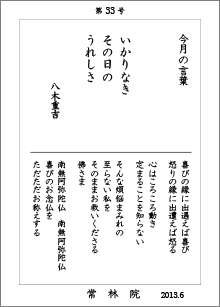 第33号
今月の言葉
いかりなき
その日の
うれしさ
八木重吉
喜びの縁に出遇えば喜び
怒りの縁に出遭えば怒る
心はころころ動き
定まることを知らない
そんな煩悩まみれの
至らない私を
そのままお救いくださる
佛さま
南無阿弥陀仏　南無阿弥陀仏
喜びのお念仏を
ただただお称えする
常林院
2013.6